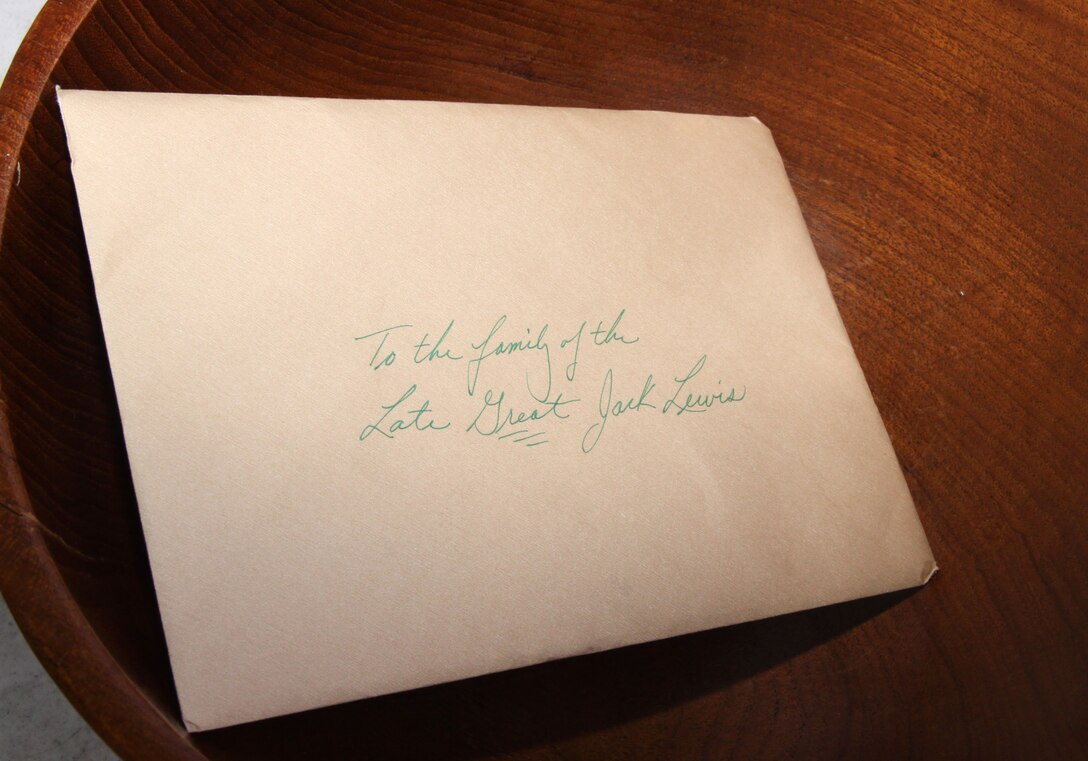 To the family of the
Late Great Jack Lewis